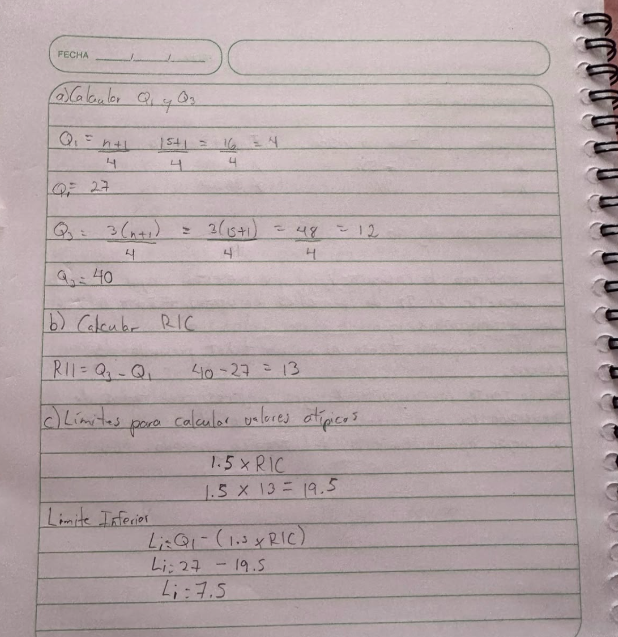 FECHA ___/___/___
a) Calcular Q₁ y Q₃
Q₁ = n+1/4 15+1/4 = 16/4 = 4
Q₁= 27
Q₃ = 3(n+1)/4 = 3(15+1)/4 = 48/4 = 12
Q₃ = 40
b) Calcular RIC
RII = Q₃ - Q₁ 40-27 = 13
c) Límites para calcular valores atípicos
1.5 x RIC
1.5 x 13 = 19.5
Límite Inferior
Li=Q₁-(1.5 x RIC)
Li=27 - 19.5
Li=7.5